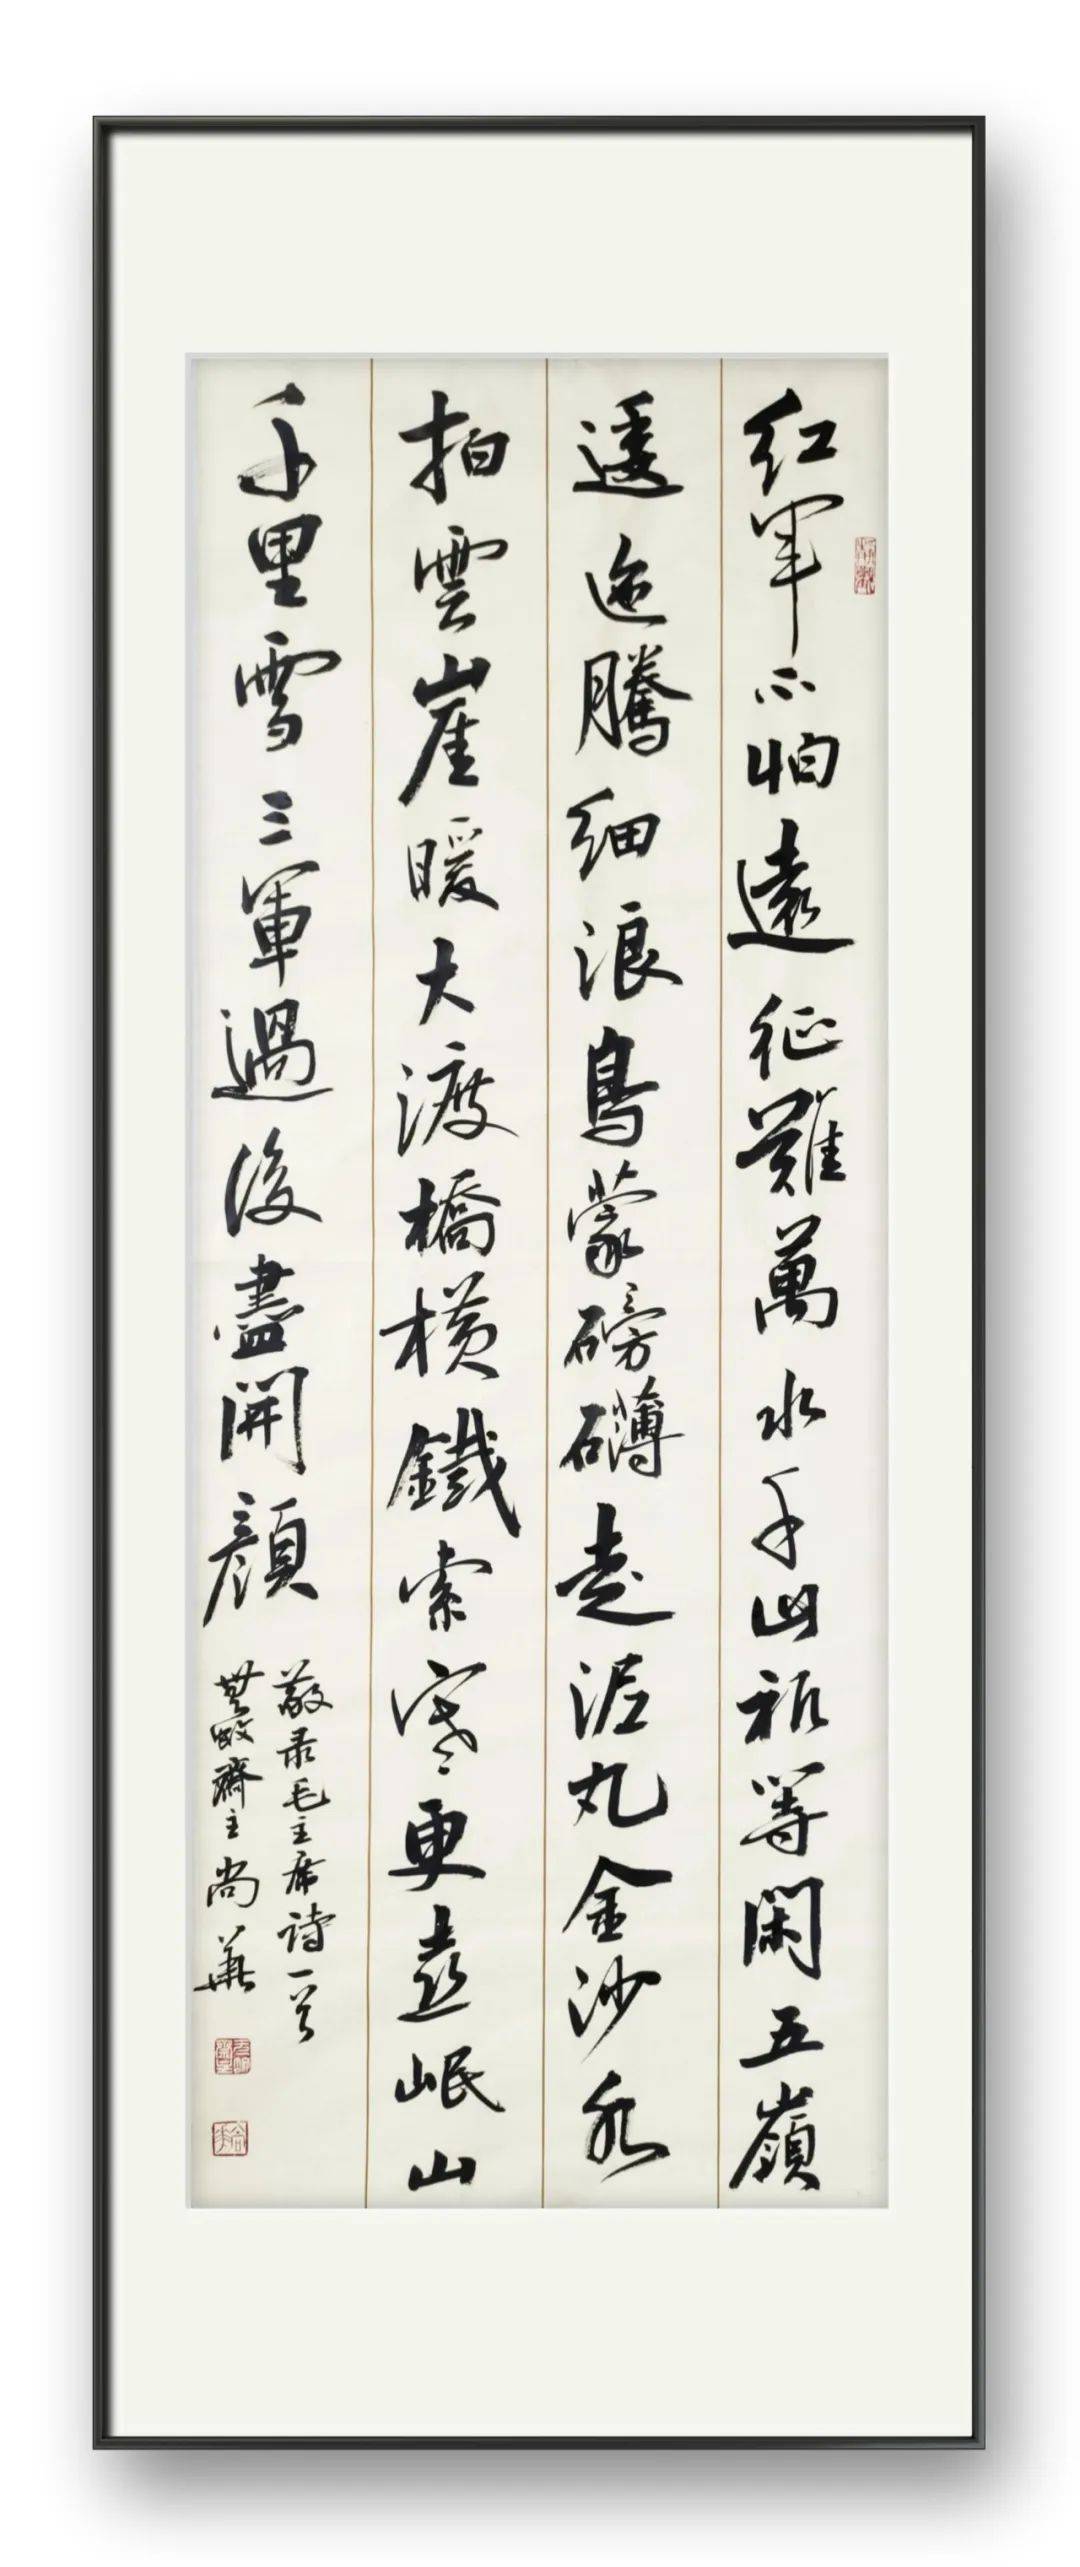 红军不怕遠征難萬水千山祇等閑五嶺
逶迤騰细浪烏蒙磅礴走泥丸金沙水
拍雲崖暖大渡橋横鐵索寒更喜岷山
千里雪三軍過後盡開顏
敬录毛主席诗一首
齋主尚華